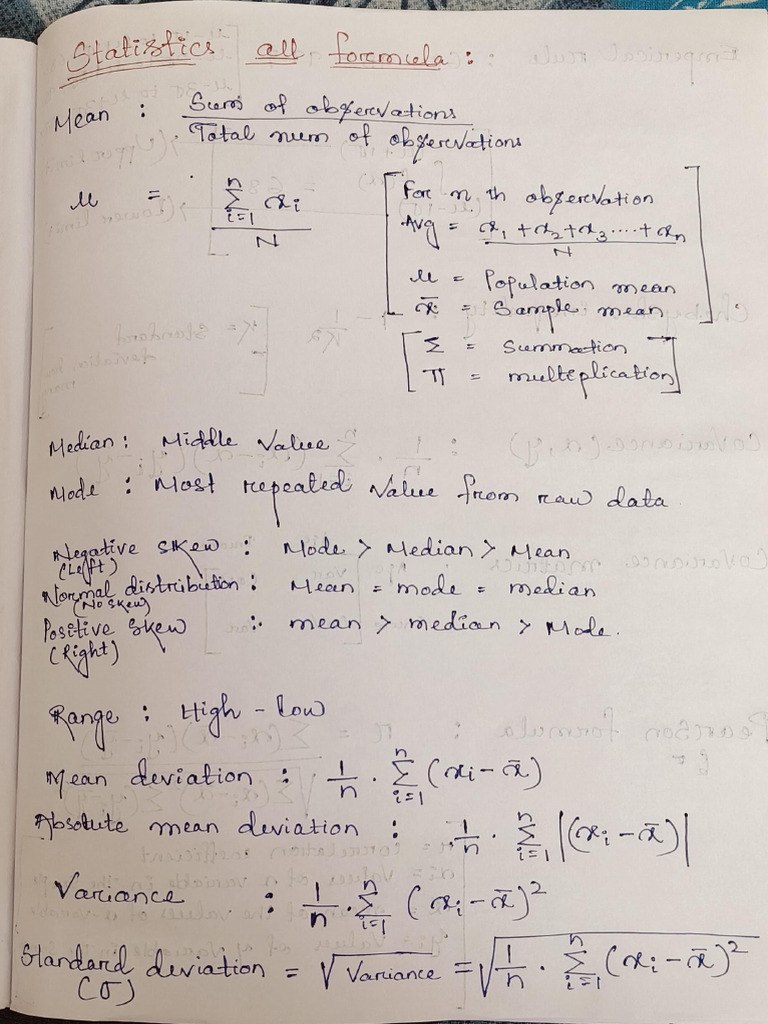 Statistics all formula:
Mean : Sum of observations / Total num of observations
μ = Σ_{i=1}^{n} x_i / N
[For n th observation
Avg = x_1 + x_2 + x_3 .... + x_n / N
μ = Population mean
x̄ = Sample mean]
[Σ = Summation →
π = multiplication]
Median : Middle Value
Mode : Most repeated Value from raw data
Negative skew : Mode > Median > Mean
(Left)
Normal distribution : Mean = mode = median
(No skew)
Positive Skew : mean > median > Mode.
(Right)
Range : High - low
Mean deviation : 1/n · Σ_{i=1}^{n} (x_i - x̄)
Absolute mean deviation : 1/n · Σ_{i=1}^{n} |(x_i - x̄)|
Variance : 1/n · Σ_{i=1}^{n} (x_i - x̄)²
Standard deviation = √Variance = √(1/n · Σ_{i=1}^{n} (x_i - x̄)²)
(σ)